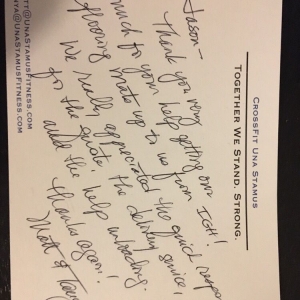 CROSSFIT UNA STAMUS
TOGETHER WE STAND. STRONG.
Jason-
Thank you very
much for your help getting our
flooring mats up to us from IGH!
We really appreciated the quick
for the quote, the delivery service,
and the help unloading.
Thanks again!
Matt &
@UNASTAMUSFITNESS.COM
@UNASTAMUSFITNESS.COM